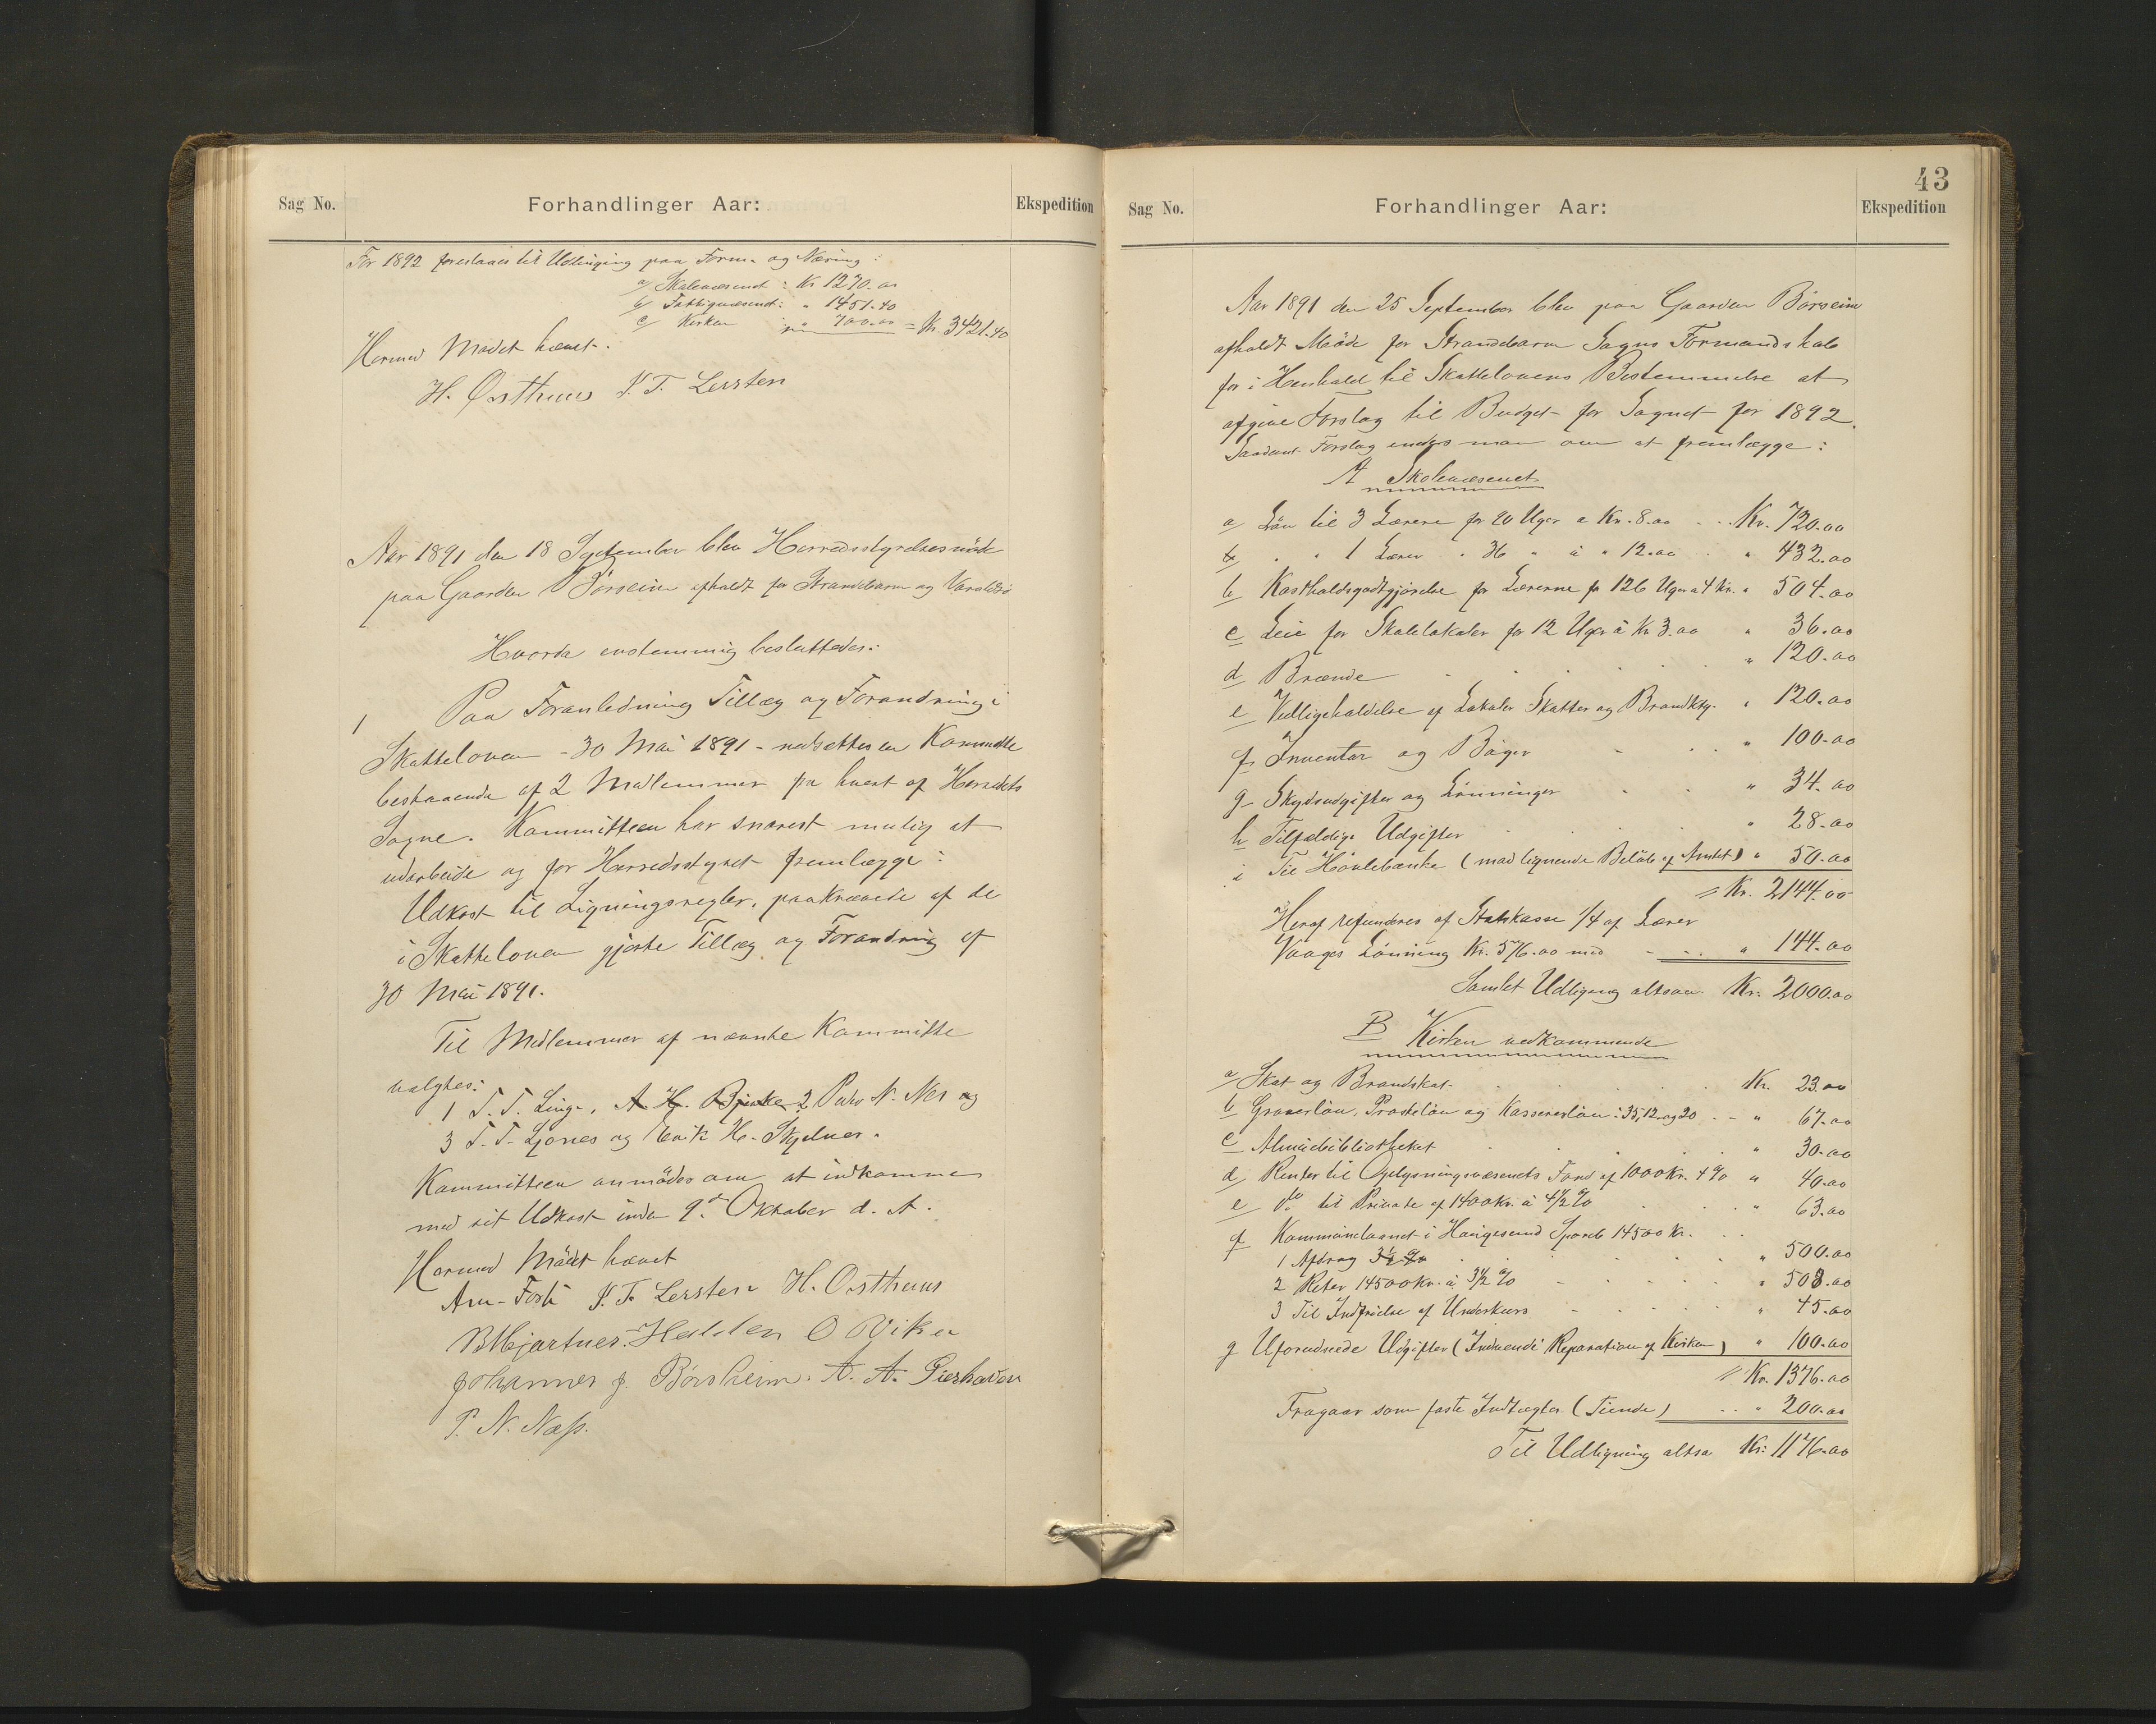 Sag No.
Forhandlinger Aar:
Ekspedition
For 1892 foreslaaes til Udligning paa Form. og Næring:
a/ Skolevæsenet: Kr 1270.00
b/ Fattigvæsenet: " 1451.40
c/ Kirken " 700.00 = Kr. 3421.40
Hermed Mødet hævet.
H. Østhuus J. T. Lersten
Aar 1891 den 18 September blev Herredsstyrelsesmöde
paa Gaarden Börseim afholdt for Strandebarm og Varaldsö
Hvorda enstemmig besluttedes:
1 Paa Foranledning Tillæg og Forandring i
Skatteloven - 30 Mai 1891 - nedsættes en Kommitte
bestaaende af 2 Medlemmer fra hvert af Herredets
Sogne. Kommitteen har snarest mulig at
udarbeide og for Herredsstyret fremlægge:
Udkast til Ligningsregler, paakrævede af de
i Skatteloven gjorte Tillæg og Forandring af
30 Mai 1891.
Til Medlemmer af nævnte Kommitte
valgtes:
1 T. T. Linge, A H. Bjerke 2 Peder N. Nes og
3 T. T. Ljones og Erik H. Skjelnes.
Kommitteen anmödes om at indkomme
med sit Udkast inden 9de Oktober d. A.
Hermed Mödet hævet
J. T. Lersten H. Østhuus
O Viken
Johannes J. Börsheim. A. A.
P. N. Næss.
43
Sag No.
Forhandlinger Aar:
Ekspedition
Aar 1891 den 25 September blev paa Gaarden Börseim
afholdt Möde for Strandebarm Sogns Formandskab
for i Henhold til Skattelovens Bestemmelse at
afgive Forslag til Budget for Sognet for 1892.
Saadant Forslag enedes man om at fremlægge:
A Skolevæsenet
a/ Lön til 3 Lærere for 20 Uger a Kr. 8.00 . . Kr. 720.00
" " 1 Lærer " 36 " à " 12.00 . " 432.00
b/ Kostholdsgodtgjörelse for Lærerne for 126 Uger a 4 Kr. " 504.00
c Leie for Skolelokaler for 12 Uger à Kr 3.00 " 36.00
d/ Brænde . . . . " 120.00
e Vedligeholdelse af Lokaler Skatter og Brandktg. " 120.00
f. Inventar og Böger . . . " 100.00
g- Skydsudgifter og Lönninger . . " 34.00
h Tilfældige Udgifter . . . " 28.00
i Til Hövlebænke (med lignende Belöb af Amtet) " 50.00
= Kr. 2144.00
Heraf refunderes af Statskasse 1/4 af Lærer
Vaages Lönning Kr. 576.00 med - . . " 144.00
Samlet Udligning altsaa Kr. 2000.00
B Kirken vedkommende
a/ Skat og Brandskat . . . . . Kr. 23.00
b Graverlön, Præstelön og Kassererlön: 35, 12 og 20 . - " 67.00
c Almuebibliotheket . . . . " 30.00
d/ Renter til Oplysningsvæsenets Fond af 1000 Kr. 4 % " 40.00
e do til Private af 1400 Kr. à 4 1/2 % . . " 63.00
f Kommunelaanet i Haugesund Spareb 14500 Kr. . .
1 Afdrag 3 1/2 % . . . . . " 500.00
2 Reter 14500 Kr. à 3 1/2 % - . . . " 508.00
3 Til Indfrielse af Underkurs - . . . " 45.00
g Uforudsede Udgifter (Indvendi Reparation af Kirken) " 100.00
= Kr. 1376.00
Fragaar som faste Indtægter (Tiende) . . " 200.00
Til Udligning altsa Kr: 1176.00